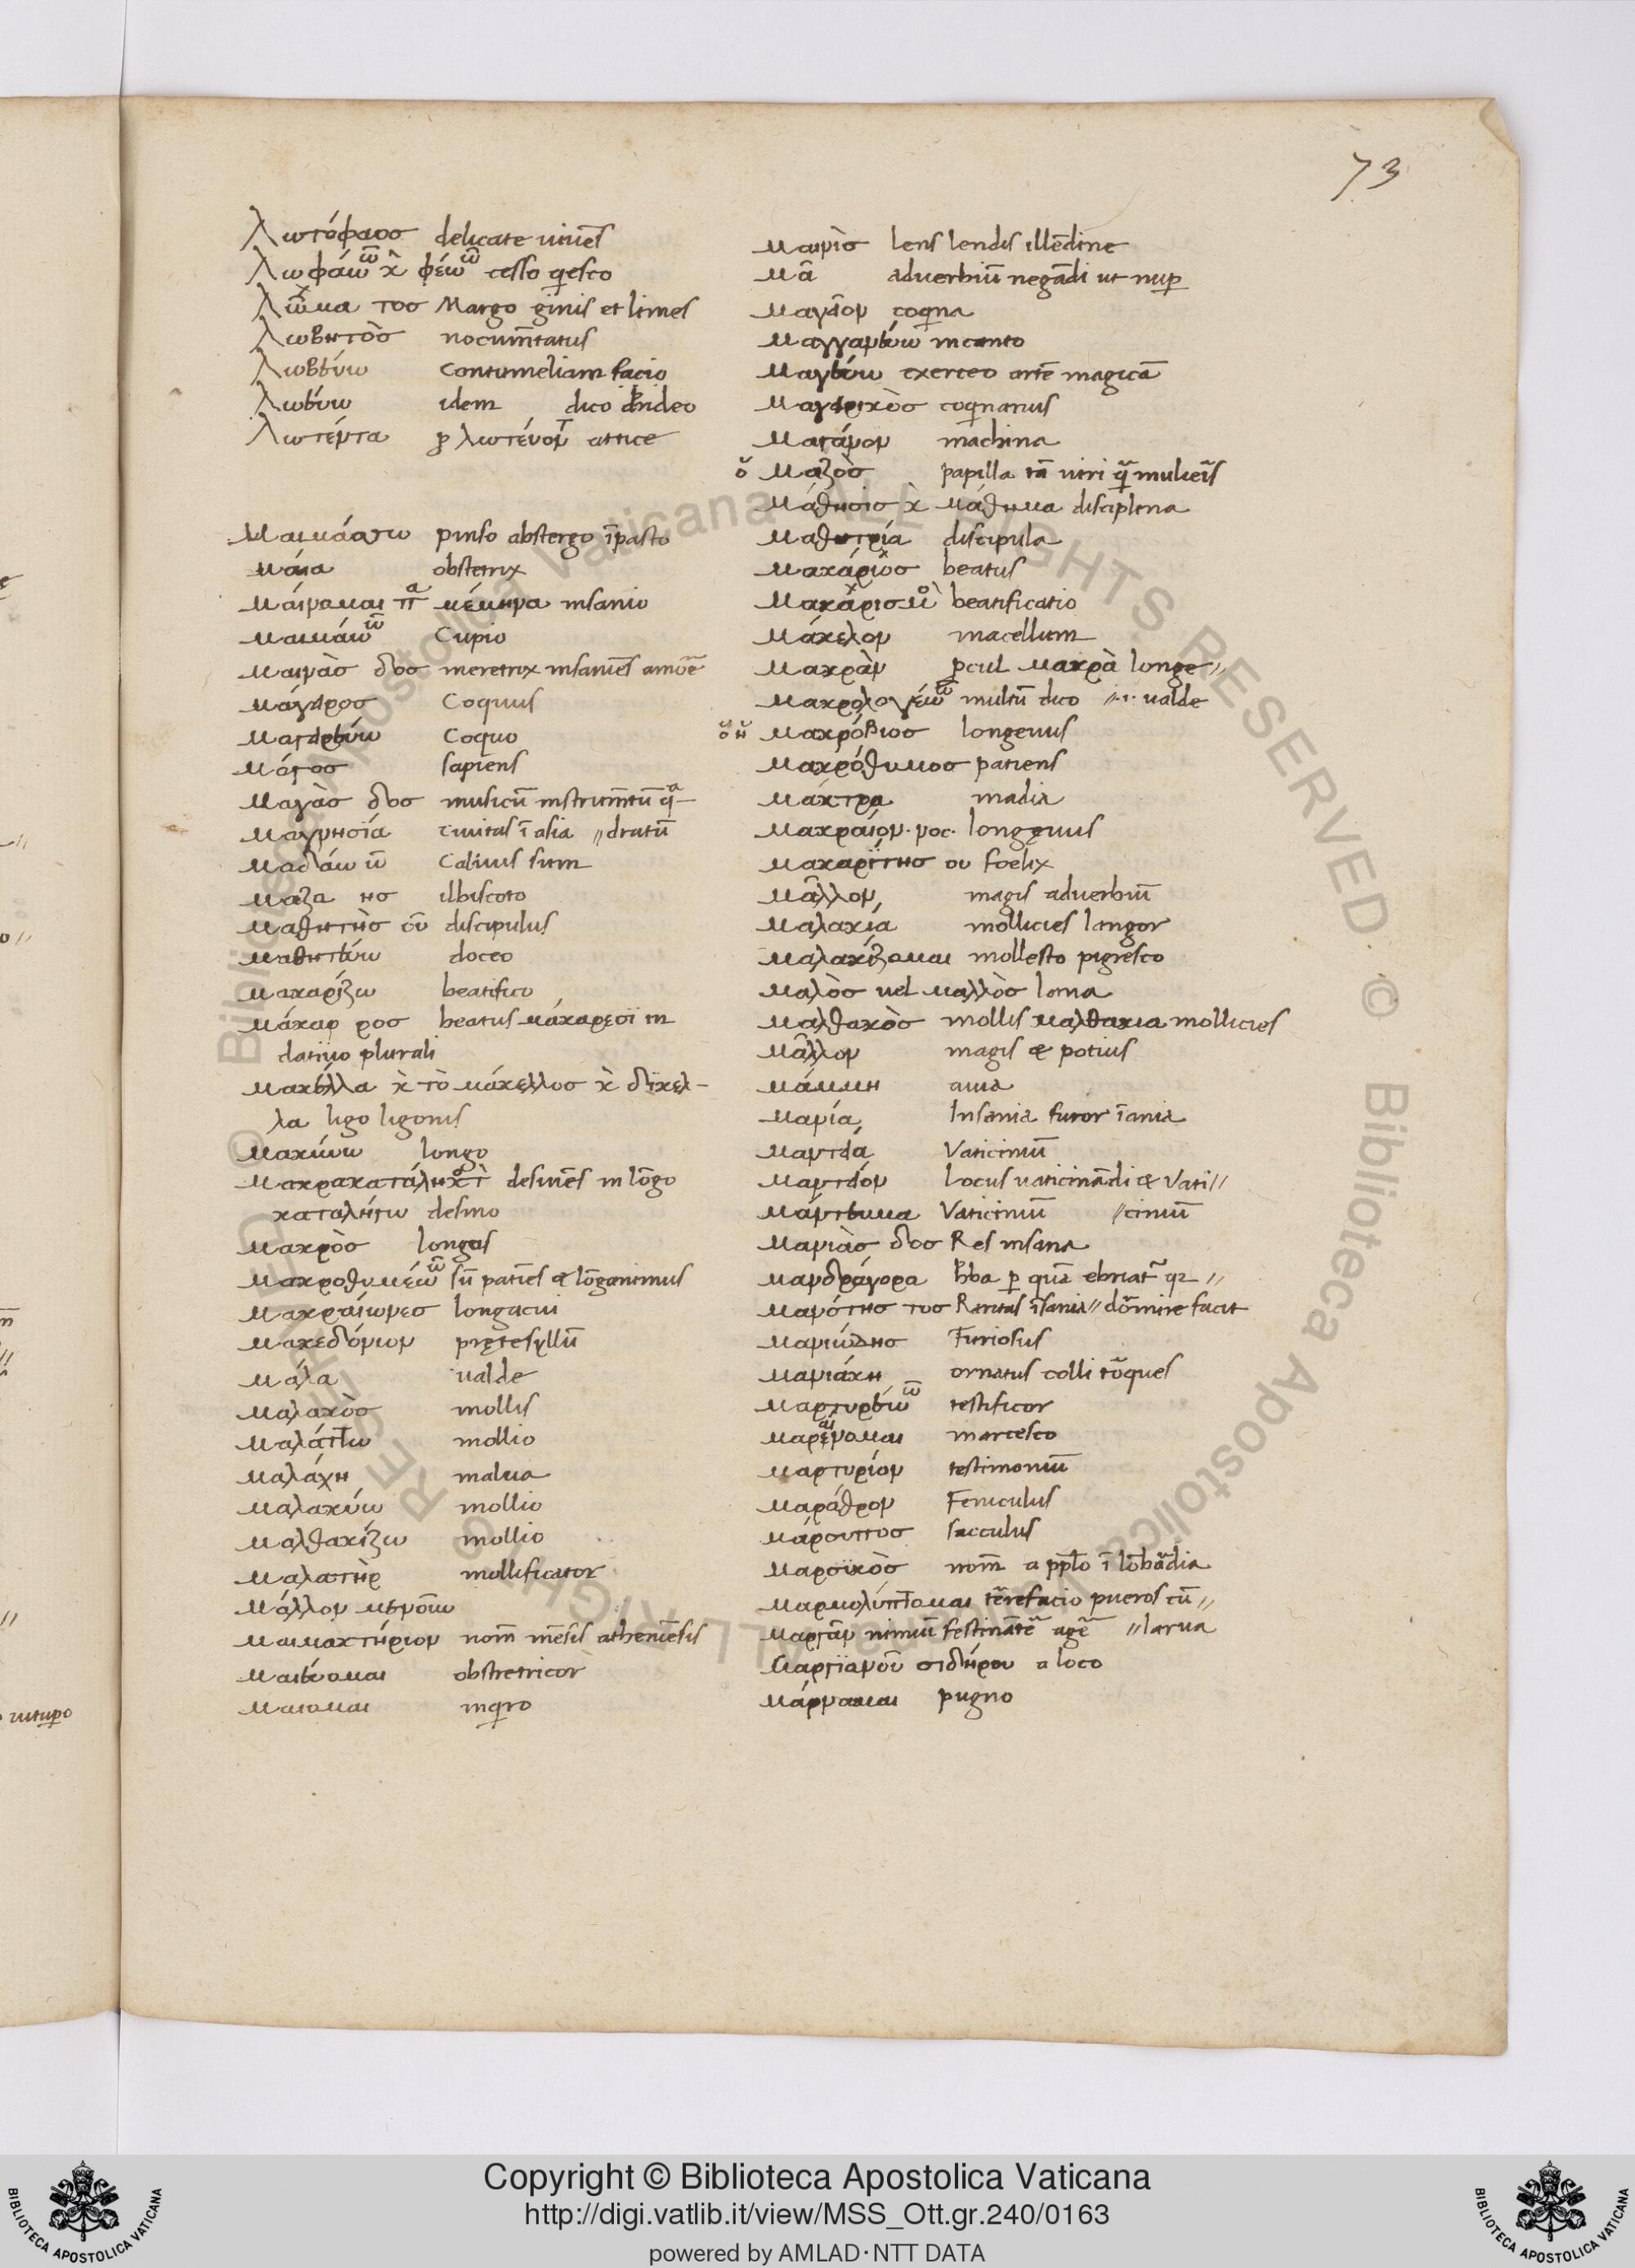 73
Λωτόφαοσ delicate viue͂s
Λωφάω ῶ κ̀ φέω ῶ cesso qesco
Λῶμα τοσ Margo ginis et limes
Λωβητὸσ nocum͂tatus
Λωβεύω Contumeliam facio
Λωβύω idem dico
Λωτεῦντα λωτέυον attice
Μαιμάσσω pinso abstergo ῑpasto
Μάια obstetrix
Μάινομαι πα μέμηνα insanio
Μαιμάω ῶ Cupio
Μαινὰσ δοσ meretrix insanie͂s amōē
Μάγειροσ Coquus
Μαγειρεύω Coquo
Μάγοσ sapiens
Μαγὰσ δοσ musicū instrum͂tū qa–
Μαγνησία Ciuitas ī asia //dratū
Μαδάω ῶ Caluus sum
Μαζα ησ ilbiscoto
Μαθητὴσ οῦ discipulus
Μαθητεύω doceo
Μακαρίζω beatifico
Μάκαρ ροσ beatus μάκαρεσϊ in
datiuo plurali
Μακέλλα κ̀ τὸ μάκελλοσ κ̀ δίκελ–
λα ligo ligonis
Μακύνω longo
Μακρακατάληκτ desine͂s in lōgo
καταλήγω desino
Μακρὸσ longus
Μακροθυμέω ῶ sū patie͂s & lōganimus
Μακραίωνεσ longaeui
Μακεδόνιον pręteselłū
Μάλα ualde
Μαλακὸσ mollis
Μαλάττω mollio
Μαλάχη malua
Μαλακύω mollio
Μαλθακίζω mollio
Μαλατὴρ mollificator
Μάλλον μενοῦν
Μαιμακτήριον nom͂ me͂sis athenie͂sis
Μαιεύομαι obstretricor
Μαιομαι inqro
Μαινὶσ lens lendis ille͂dine
Μᾶ aduerbiū negādi ut nup
Μαγεῖον coqna
Μαγγανεύω incanto
Μαγεύω exerceo arte͂ magicā
Μαγειρικὸσ coqnarius
Μαγάνον machina
ὁ Μαζὸσ papilla tā uiri q͂ mulieris
Μάθησισ κ̀ μάθημα disciplina
Μαθητρία discipula
Μακάριοσ beatus
Μακάρισμὸ beatificatio
Μάκελον macellum
Μακρὰν pcul μακρὰ longe//
Μακρολογέω ῶ multū dico //.i. ualde
ὁ ἡ Μακρόβιοσ longeuus
Μακρόθυμοσ patiens
Μάκτρα madia
Μακραίον· νοσ· longęuus
Μακαρίτησ ου foelix
Μᾶλλον magis aduerbiū
Μαλακία mollicies langor
Μαλακίζομαι mollesto pigresco
Μαλὸσ uel μαλλὸσ lana
Μαλθακὸσ mollis μαλθακια mollicies
Μᾶλλον magis & potius
Μάμμη auia
Μανία Insania furor īania
Μαντεία Vaticiniū
Μαντεῖον locus uaticinādi & Vati//
Μάντευμα Vaticiniū //ciniū
Μανιὰσ δοσ Res insana
Μανδράγορα h͂ba p quā ebriat͂ qz //
Μανότησ τοσ Raritas īsania //dormire facit
Μανιώδησ Furiosus
Μανιάκη ornatus colli tōques
Μαρτυρέω ῶ testificor
Μαραίνομαι marcesco
Μαρτυρίον testimoniū
Μαράθρον Feniculus
Μάρσιπποσ sacculus
Μαρσϊκὸσ nom͂ a pplo ī lōbādia
Μαρμολύττομαι te͂refacio pueros cū //
Μαργᾶν nimiū festināte͂ age͂ //larua
Μαργϊανοῦ σιδήρου a loco
Μάρναμαι pugno
Copyright © Biblioteca Apostolica Vaticana
http://digi.vatlib.it/view/MSS_Ott.gr.240/0163
powered by AMLAD·NTT DATA
BIBLIOTECA APOSTOLICA VATICANA
BIBLIOTECA APOSTOLICA VATICANA